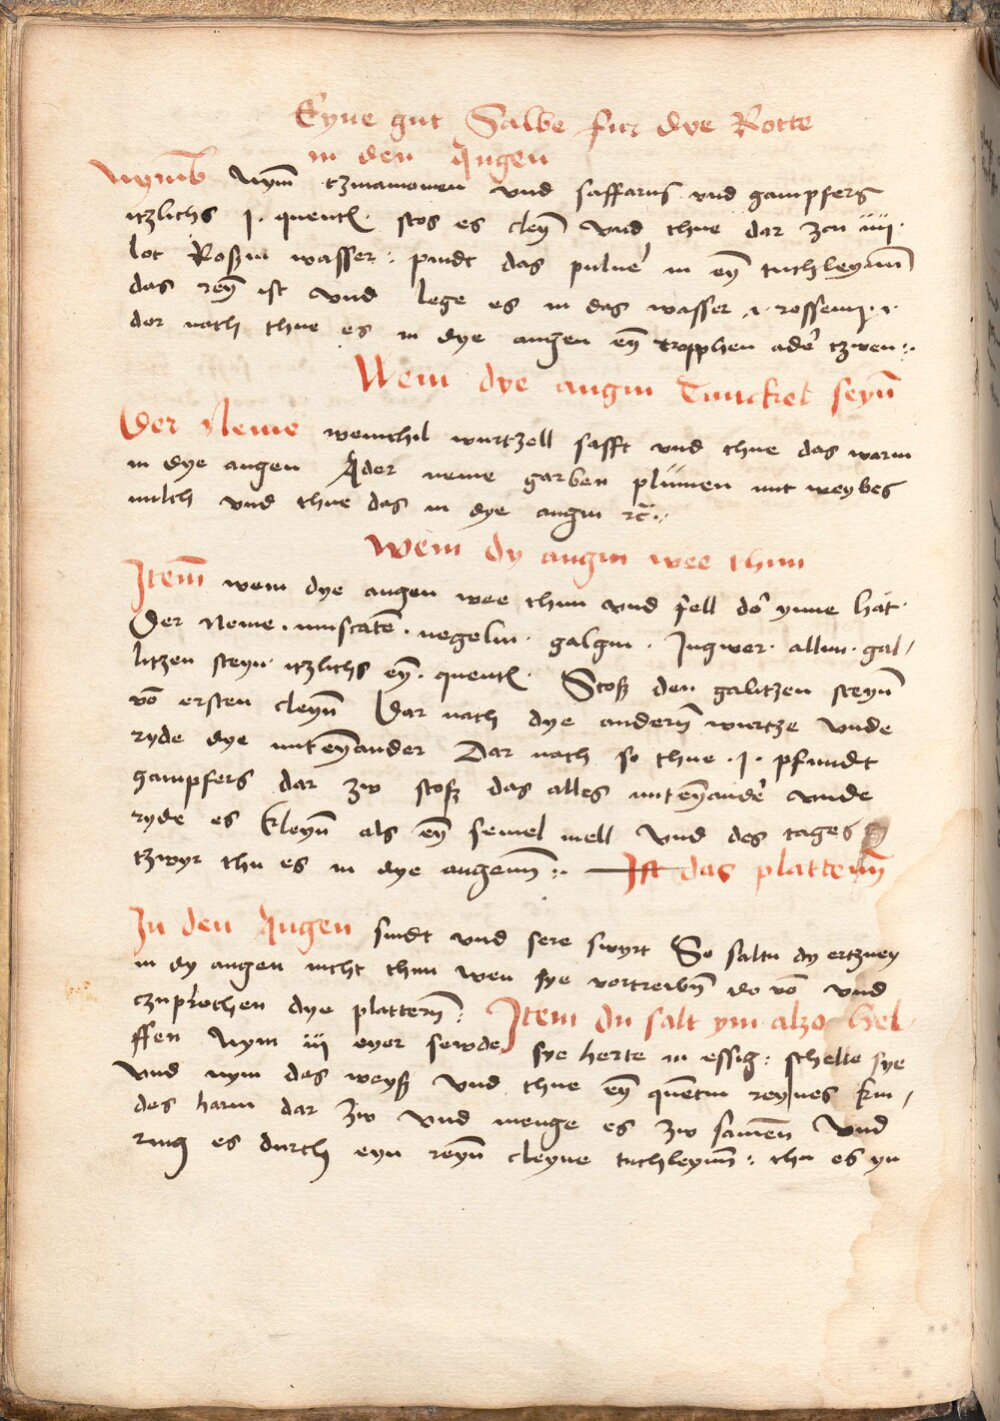 Eyne gut Salbe fur dye Rotte
in den Augen
Nymb Nym̄ tzinamomen vnd saffarns vnd gampfers
itzlichs j. quentl. stos es cleyn̄ vnd thue dar zcu iiij.
lot Roßin wasser: pindt das puluer in eyn̄ tuchleynn̄
das reyn̄ ist vnd lege es in das wasser
dor noch thue es in dye augen eyn̄ tropphen ader tzwen:.
Wem dye augin Tunckel seyn̄
Der Neme wenichil wurtzell safft vnd thue das warm
in dye augen Ader neme garben plümen mit weybes
milch vnd thue das in dye augin ꝛc̄:.
Wem dy augin wee thun
Item̄ wem dye augen wee thun vnd fell dor ynne hat.
Der Neme. muscatē. negelin. galgin. Ingwer. allun. gal/
litzen steyn. itzlichs eyn̄. quentl. Stoß den galitzen steyn̄
vō ersten cleyn̄ Dar nach dye andern̄ wurtze vnde
ryde dye mit eyn̄ander Dar nach so thue .j. pfundt
gampfers dar zw stoß das alles mit eyn̄ander vnde
ryde es kleyn̄ als eyn̄ semel mell vnd des tages
tzwyr thu es in dye augenn̄:. Ist das plattern̄
In den Augen sindt vnd sere swyrt So saltu dy ertzney
in dy augen nicht thun wen sye vortreibn̄ do vō vnd
czuprochen dye plattern̄: Item du salt ym alzo hel
ffen Nym iij eyer sewde sye herte in essig: schelle sye
vnd nym das weyß vnd thue eyn̄ quētin reynes kin/
des harm dar zw vnd menge es zw samen̄ vnd
ring es durch eyn reyn̄ cleyne tuchleynn̄: thu es yn